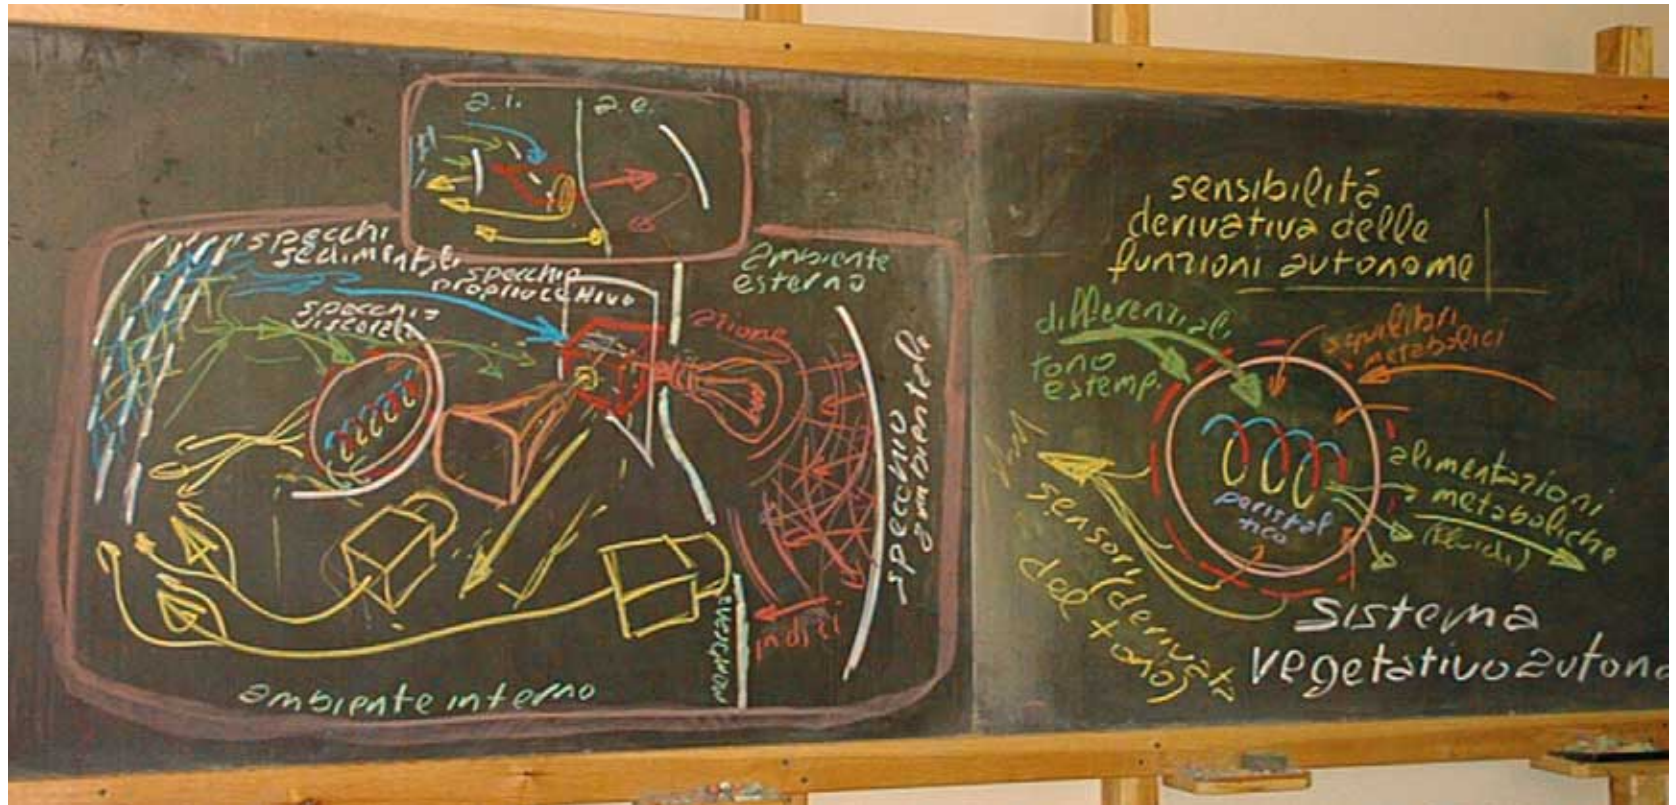 a.i. a.e.
specchi
sedimentali
specchio
propriocettivo
specchio
viscerale
ambiente
esterno
azione
specchio
ambientale
indici
ambiente interno
sensibilità
derivativa delle
funzioni autonome
differenziali
tono
estemp.
squilibri
metabolici
peristal
tico
alimentazioni
metaboliche
(fluidi)
sensori (derivata
del tono)
sistema
vegetativo autono